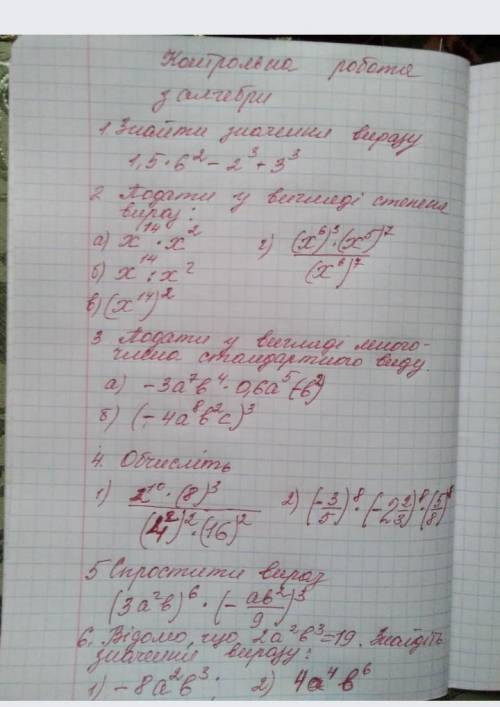 Контрольна робота
з алгебри
1 Знайти значення виразу
1,5 · 6² − 2³ + 3³
2 Подати у вигляді степеня
вираз:
а) x¹⁴ · x² г) (x⁶)³ · (x⁵)⁷ / (x⁶)⁷
б) x¹⁴ : x²
в) (x¹⁴)²
3 Подати у вигляді много-
члена стандартного виду.
а) −3a⁷b⁴ · 0,6a⁵(−b²)
б) (−4a⁸b²c)³
4. Обчисліть
1) 2¹⁰ · (8)³ / (4²)² · (16)² 2) (−3/5)⁸ · (−2 2/3)⁸ · (5/8)⁸
5 Спростити вираз
(3a²b)⁶ · (−ab²/9)³
6. Відомо, що 2a²b³=19. Знайдіть
значення виразу:
1) −8a²b³; 2) 4a⁴b⁶